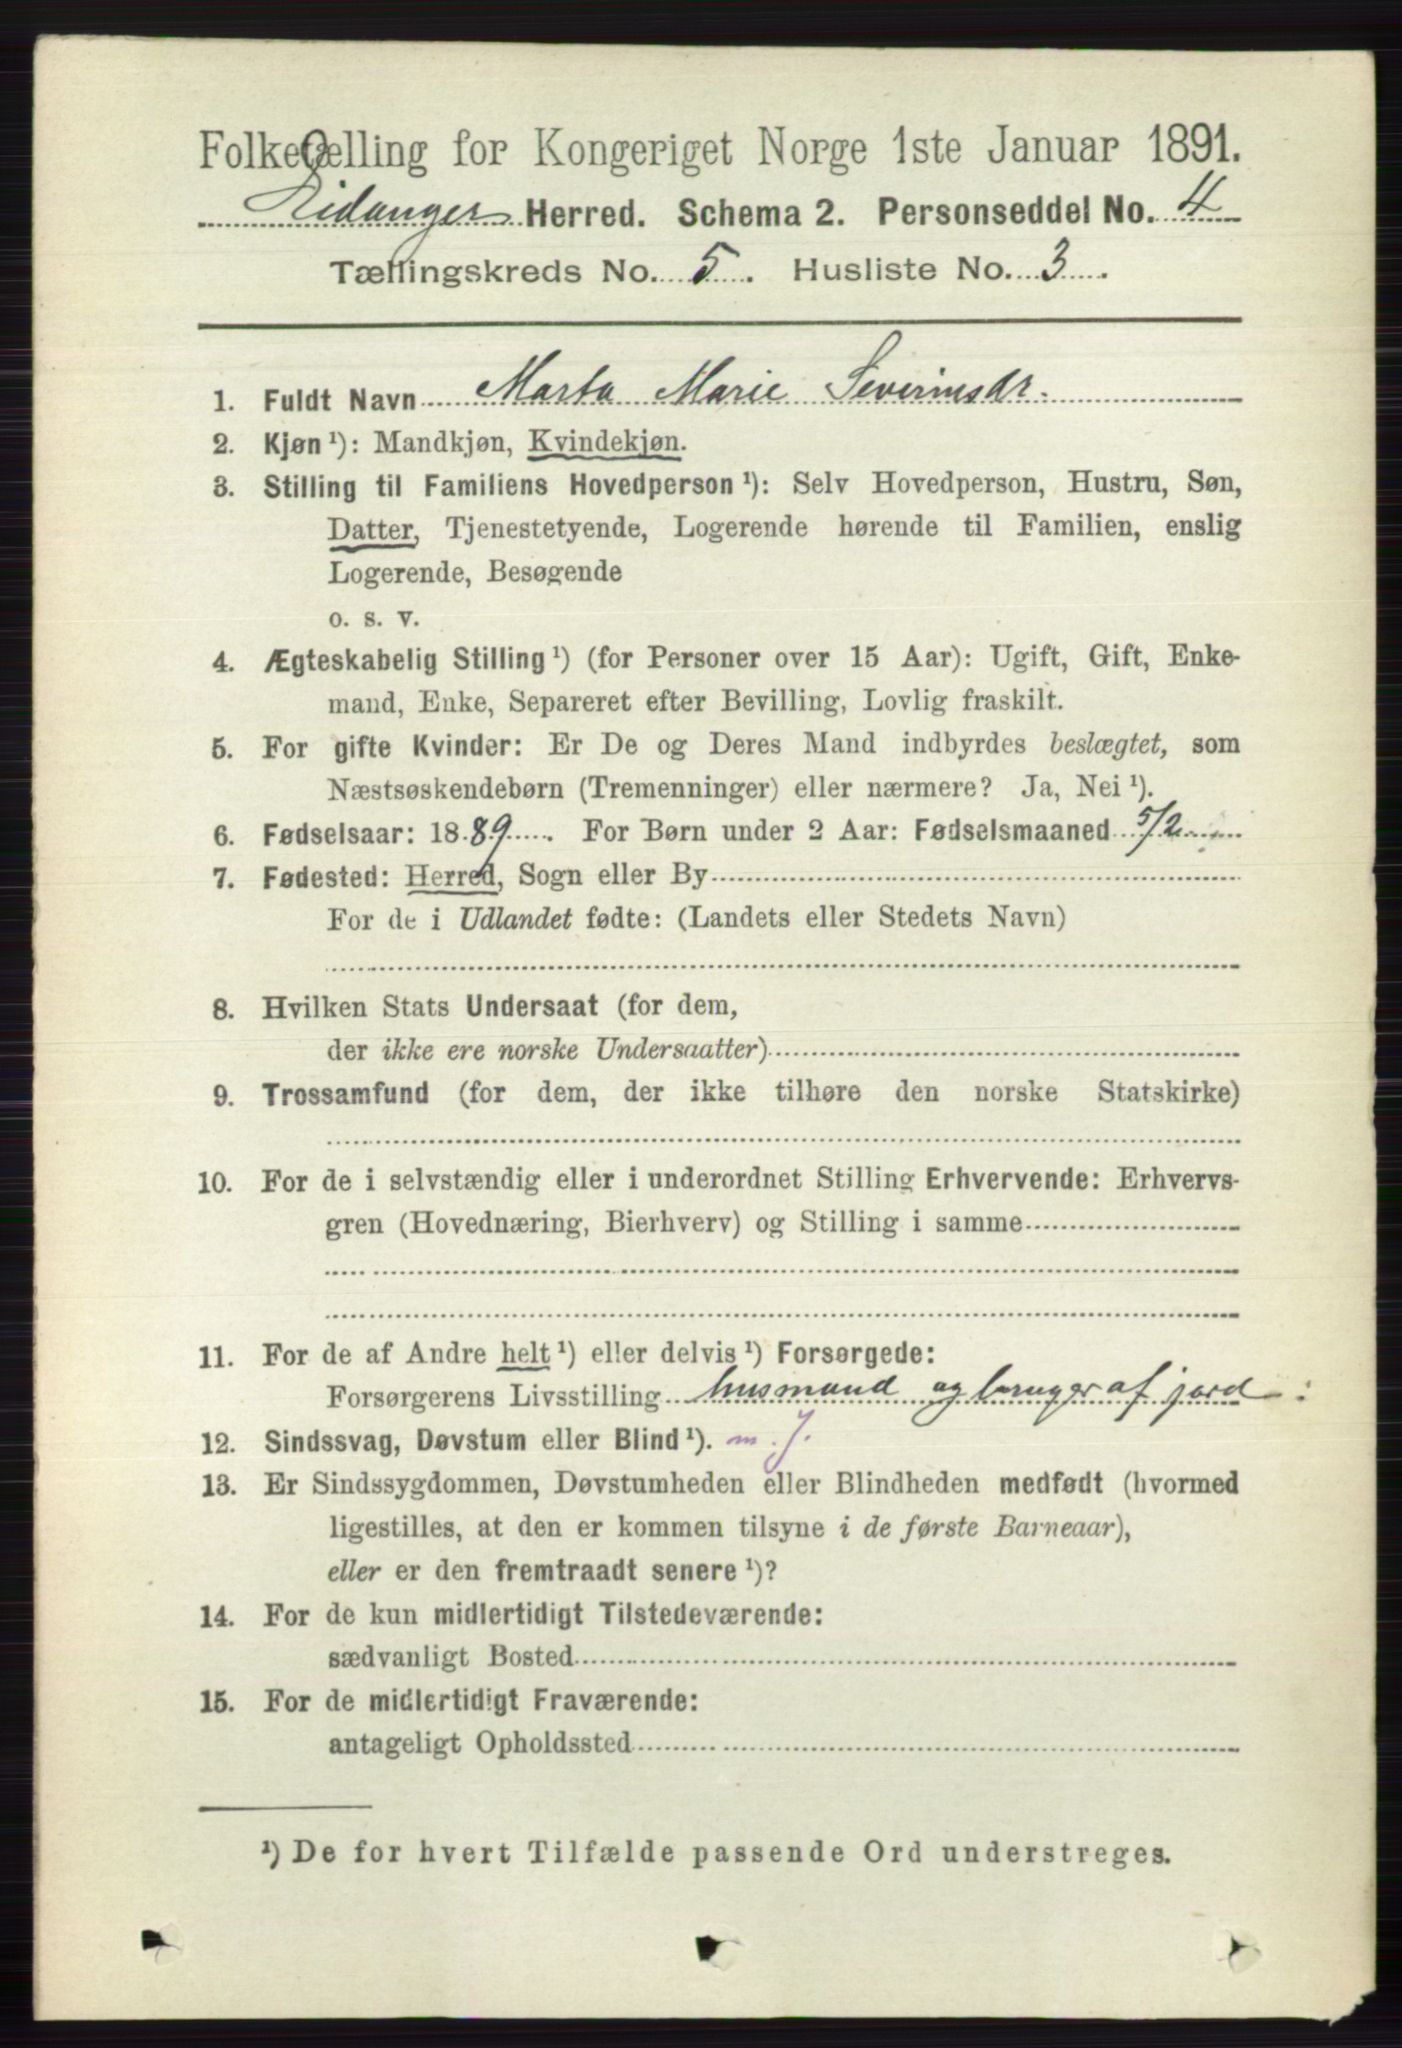 Folketælling for Kongeriget Norge 1ste Januar 1891.
Eidanger Herred. Schema 2. Personseddel No. 4
Tællingskreds No. 5. Husliste No. 3.
1. Fuldt Navn Marta Marie Severinsdr.
2. Kjøn ¹): Mandkjøn, Kvindekjøn.
3. Stilling til Familiens Hovedperson ¹): Selv Hovedperson, Hustru, Søn,
Datter, Tjenestetyende, Logerende hørende til Familien, enslig
Logerende, Besøgende
o. s. v.
4. Ægteskabelig Stilling ¹) (for Personer over 15 Aar): Ugift, Gift, Enke-
mand, Enke, Separeret efter Bevilling, Lovlig fraskilt.
5. For gifte Kvinder: Er De og Deres Mand indbyrdes beslægtet, som
Næstsøskendebørn (Tremenninger) eller nærmere? Ja, Nei ¹).
6. Fødselsaar: 1889. For Børn under 2 Aar: Fødselsmaaned 5/2
7. Fødested: Herred, Sogn eller By
For de i Udlandet fødte: (Landets eller Stedets Navn)
8. Hvilken Stats Undersaat (for dem,
der ikke ere norske Undersaatter)
9. Trossamfund (for dem, der ikke tilhøre den norske Statskirke)
10. For de i selvstændig eller i underordnet Stilling Erhvervende: Erhvervs-
gren (Hovednæring, Bierhverv) og Stilling i samme
11. For de af Andre helt ¹) eller delvis ¹) Forsørgede:
Forsørgerens Livsstilling husmand og bruger af jord
12. Sindssvag, Døvstum eller Blind ¹). m. J.
13. Er Sindssygdommen, Døvstumheden eller Blindheden medfødt (hvormed
ligestilles, at den er kommen tilsyne i de første Barneaar),
eller er den fremtraadt senere ¹)?
14. For de kun midlertidigt Tilstedeværende:
sædvanligt Bosted
15. For de midlertidigt Fraværende:
antageligt Opholdssted
¹) De for hvert Tilfælde passende Ord understreges.